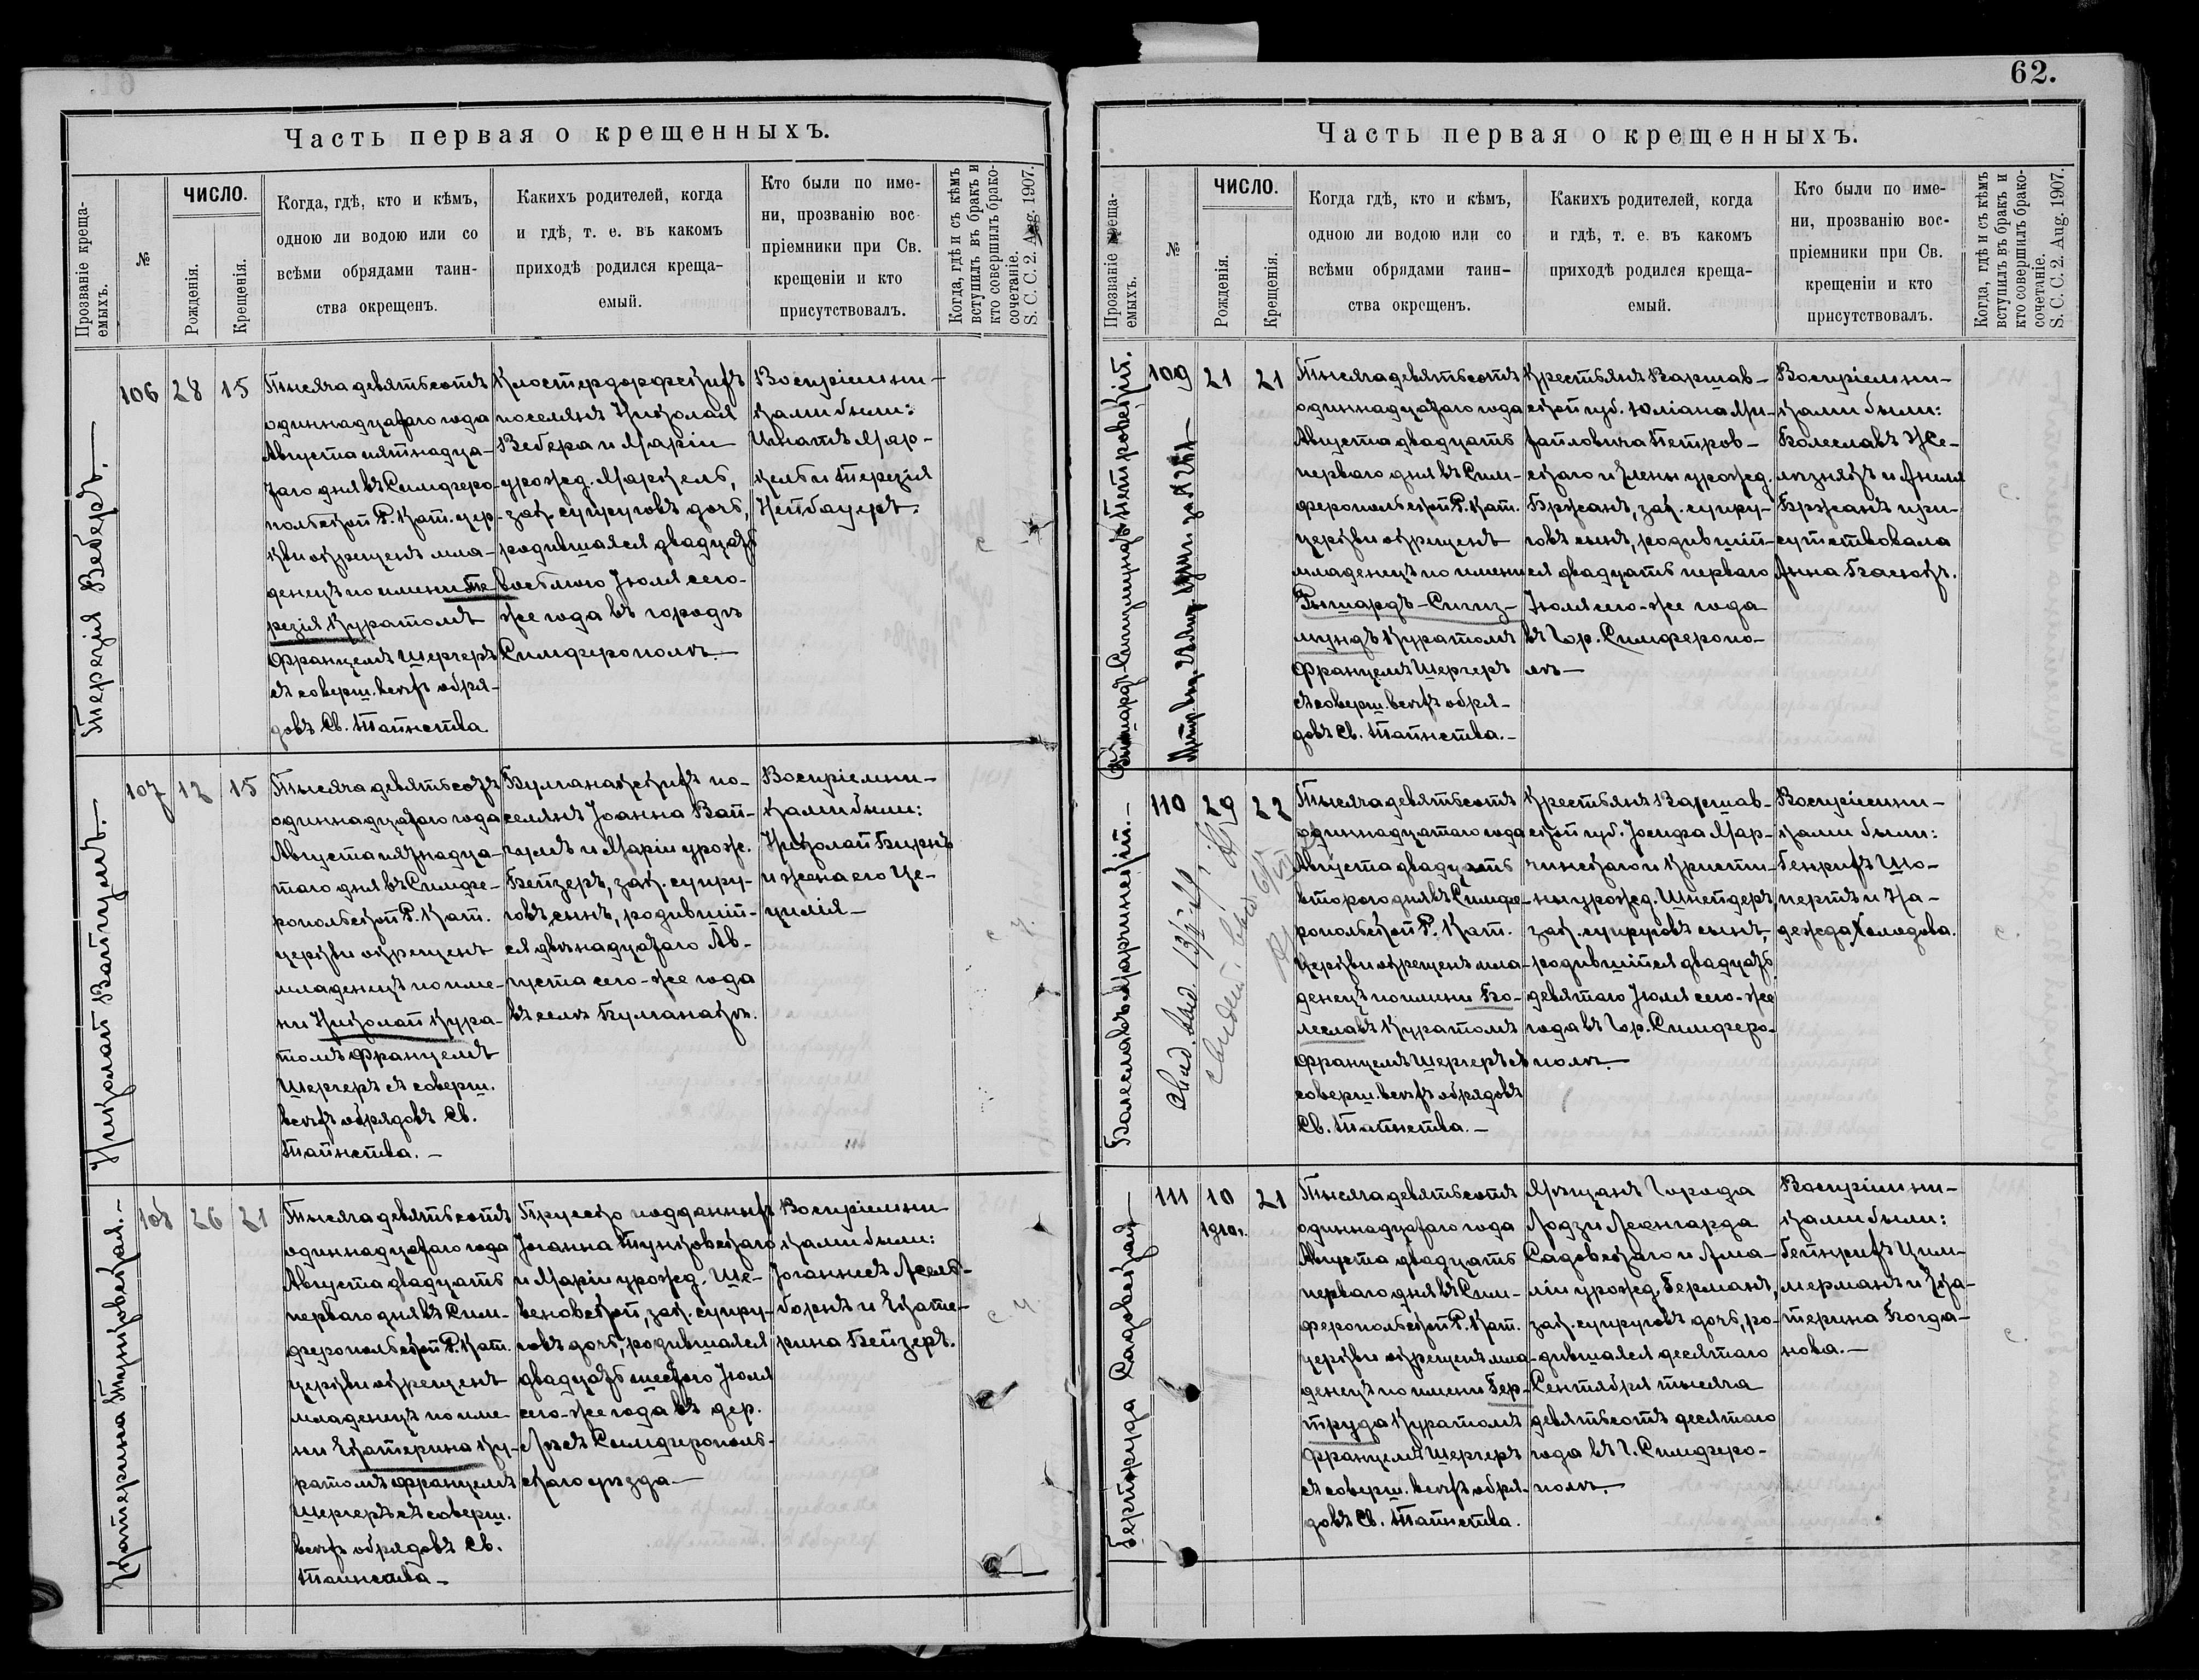 62.
Часть первая о крещенныхъ.
Прозваніе креща-
емыхъ.
№
ЧИСЛО.
Рожденія.
Крещенія.
Когда, гдѣ, кто и кѣмъ,
одною ли водою или со
всѣми обрядами таин-
ства окрещенъ.
Какихъ родителей, когда
и гдѣ, т. е. въ какомъ
приходѣ родился креща-
емый.
Кто были по име-
ни, прозванію вос-
пріемники при Св.
крещеніи и кто
присутствовалъ.
Когда, гдѣ и съ кѣмъ
вступилъ въ бракъ и
кто совершилъ брако-
сочетаніе.
S. C. C. 2. Aug. 1907.
Терезія Веберъ.—
106
28
15
Тысяча девятьсотъ
одиннадцатаго года
Августа пятнадца-
таго дня въ Симферо-
польской Р. Кат. цер-
кви окрещенъ мла-
денецъ по имени Те-
резія Куратомъ
Францемъ Шергеръ
съ соверш. всѣхъ обря-
довъ Св. Таинства
Клостердорфскихъ
поселянъ Николая
Вебера и Маріи
урожд. Маркель,
зак. супруговъ дочь,
родившаяся двадцать
восьмого Іюля сего-
же года въ городѣ
Симферополѣ.—
Воспріемни-
ками были:
Игнатъ Мар-
кель и Терезія
Нейбауеръ.
Николай Вайгумъ.—
107
12
15
Тысяча девятьсотъ
одиннадцатаго года
Августа пятнадца-
таго дня въ Симфе-
ропольской Р. Кат.
церкви окрещенъ
младенецъ по име-
ни Николай Кура-
томъ Францемъ
Шергеръ съ соверш.
всѣхъ обрядовъ Св.
Таинства.—
Бумана��скихъ по-
селянъ Іоанна Вай-
гумъ и Маріи урож.
Бейзеръ, зак. супру-
говъ сынъ, родившій-
ся двѣнадцатаго Ав-
густа сего-же года
въ селѣ
Воспріемни-
ками были:
Николай Бирнъ
и жена его Це-
цилія—
Екатерина Тунковская.—
108
26
21
Тысяча девятьсотъ
одиннадцатаго года
Августа двадцать
перваго дня въ Сим-
феропольской Р. Кат.
церкви окрещенъ
младенецъ по име-
ни Екатерина Ку-
ратомъ Францемъ
Шергеръ съ соверш.
всѣхъ обрядовъ Св.
Таинства—
Прусско подданныхъ
Іоанна Тунковскаго
и Маріи урожд. Ше-
веновской, зак. супру-
говъ дочь, родившаяся
двадцать шестого Іюля
сего-же года въ дер.
Симферополь-
скаго уѣзда—
Воспріемни
ками были:
Іоаннесъ Асель-
борнъ и Екате-
рина Бейзеръ.
Часть первая о крещенныхъ.
Прозваніе креща-
емыхъ.
№
ЧИСЛО.
Рожденія.
Крещенія.
Когда гдѣ, кто и кѣмъ,
одною ли водою или со
всѣми обрядами таин-
ства окрещенъ.
Какихъ родителей, когда
и гдѣ, т. е. въ какомъ
приходѣ родился креща-
емый.
Кто были по име-
ни, прозванію вос-
пріемники при Св.
крещеніи и кто
присутствовалъ.
Когда, гдѣ и съ кѣмъ
вступилъ въ бракъ и
кто совершилъ брако-
сочетаніе.
S. C. C. 2. Aug. 1907.
Рышардъ-Сигизмундъ Петровскій.
109
21
21
Тысяча девятьсотъ
одиннадцатаго года
Августа двадцать
перваго дня въ Сим-
феропольской Р. Кат.
церкви окрещенъ
младенецъ по имени
Рышардъ-Сигиз-
мундъ Куратомъ
Францемъ Шергеръ
съ соверш. всѣхъ обря-
довъ Св. Таинства.—
Крестьянъ Варшав-
ской губ. Юліана Ми-
хайловича Петров-
скаго и Елены урожд.
Бржанъ, зак. супру-
говъ сынъ, родившій-
ся двадцать перваго
Іюля сего-же года
въ Гор. Симферопо-
лѣ—
Воспріемни-
ками были:
Болеславъ Же-
лѣзнякъ и Анеля
Бржанъ при-
сутствовала
Анна
с.
Болеславъ Марчинскій.—
110
29
22
Тысяча девятьсотъ
одиннадцатаго года
Августа двадцать
второго дня въ Симфе-
ропольской Р. Кат.
церкви окрещенъ мла-
денецъ по имени Бо-
леславъ Куратомъ
Францемъ Шергеръ съ
соверш. всѣхъ обрядовъ
Св. Таинства.—
Крестьянъ Варшав-
ской губ. Іосифа Мар-
чинскаго и Кристи-
ны урожд. Шнейдеръ,
зак. супруговъ сынъ,
родившійся двадцать
девятаго Іюля сего-же
года въ Гор. Симферо-
полѣ.—
Воспріемни-
ками были:
Генрихъ Шо-
пертъ и На-
дежда Холодова.
с.
Гертруда Садовская—
111
10
1910 г.
21
Тысяча девятьсотъ
одиннадцатаго года
Августа двадцать
перваго дня въ Сим-
феропольской Р. Кат.
церкви окрещенъ мла-
денецъ по имени Гер-
труда Куратомъ
Францемъ Шергеръ
съ соверш. всѣхъ обря-
довъ Св. Таинства.
Мѣщанъ Города
Лодзи Леонгарда
Садовскаго и Ама-
ліи урожд. Германъ,
зак. супруговъ дочь, ро-
дившаяся десятаго
Сентября тысяча
девятьсотъ десятаго
года въ г. Симферо-
полѣ.—
Воспріемни-
ками были:
Гейнрихъ Цим-
мерманъ и Ека-
терина Богда-
нова.—
с.